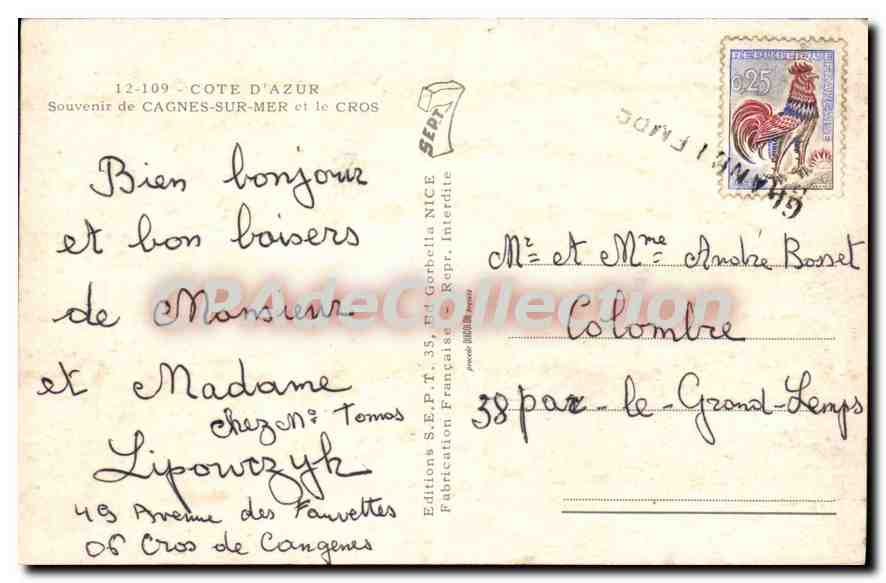 12-109 - COTE D'AZUR
Souvenir de CAGNES-SUR-MER et le CROS
Bien bonjour
et bon baisers
de Monsieur
et Madame
chez Mr Tomas
Lipowczyk
49 Avenue des Fauvettes
06 Cros de Cangenes
SEPT
Editions S.E.P.T. 35, Bd Gorbella NICE
Fabrication Française - Repr. Interdite
procédé DUCOLOR
REPUBLIQUE FRANÇAISE
0,25
Mr et Mme André Bosset
Colombre
38 par-le-Grand-Lemps
CPAdeCollection